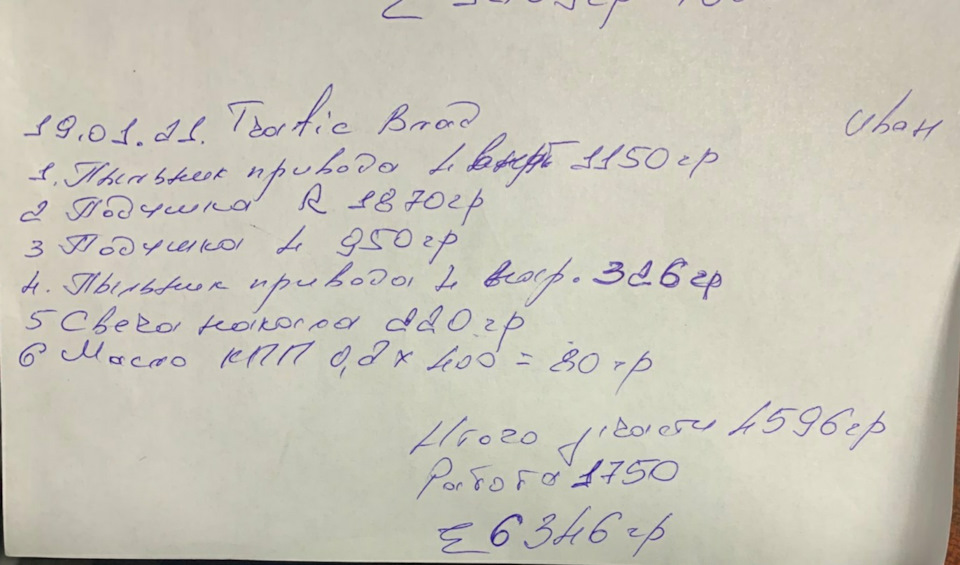 19.01.21. Trafic Влад Иван
1. Пыльник привода L внутр 1150 гр
2 Подушка R 1870 гр
3 Подушка L 950 гр
4. Пыльник привода L нар. 326 гр
5 Свеча накала 220 гр
6 Масло КПП 0,2 × 400 = 80 гр
Итого з/части 4596 гр
Работа 1750
Σ 6346 гр